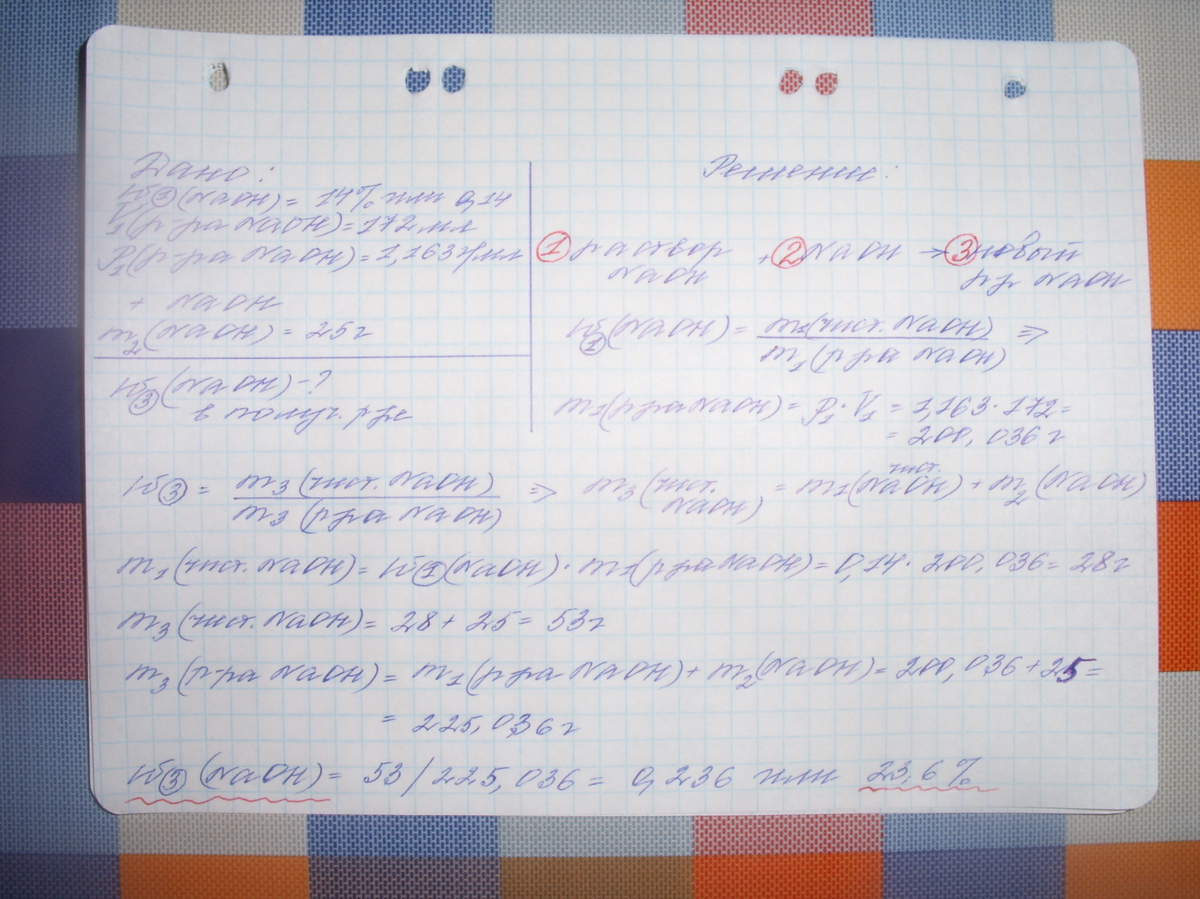 Дано:
ω①(NaOH) = 14% или 0,14
V₁(р-ра NaOH) = 172 мл
ρ₁(р-ра NaOH) = 1,163 г/мл
+ NaOH
m₂(NaOH) = 25 г
ω③(NaOH) - ?
в получ. р-ре
Решение:
① раствор NaOH + ② NaOH → ③ новый р-р NaOH
ω①(NaOH) = m₁(чист. NaOH) / m₁(р-ра NaOH) ⇒
m₁(р-ра NaOH) = ρ₁ · V₁ = 1,163 · 172 =
= 200,036 г
ω③ = m₃(чист. NaOH) / m₃(р-ра NaOH) ⇒ m₃(чист. NaOH) = m₁(чист. NaOH) + m₂(NaOH)
m₁(чист. NaOH) = ω①(NaOH) · m₁(р-ра NaOH) = 0,14 · 200,036 = 28 г
m₃(чист. NaOH) = 28 + 25 = 53 г
m₃(р-ра NaOH) = m₁(р-ра NaOH) + m₂(NaOH) = 200,036 + 25 =
= 225,036 г
ω③(NaOH) = 53 / 225,036 = 0,236 или 23,6%